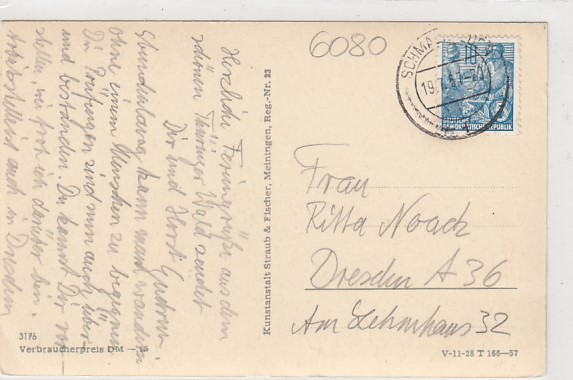 6080
SCHMA
19.
10
DEUTSCHE
DEMOKRATISCHE REPUBLIK
Herzliche Feriengrüße aus dem
schönen Thüringer Wald sendet
Dir und Horst Gudrun.
Stundenlang kann man wandern
ohne einem Menschen zu begegnen.
Die Prüfungen sind nun auch über-
und bestanden. Du kannst Dir vor-
stellen wie froh ich darüber bin.
Arbeitsstelle auch in Dresden
Kunstanstalt Straub & Fischer, Meiningen, Reg.-Nr. 23
Frau
Ritta Noack
Dresden A 36
Am Lehmhaus 32
3176
Verbraucherpreis DM
V-11-28 T 166—57